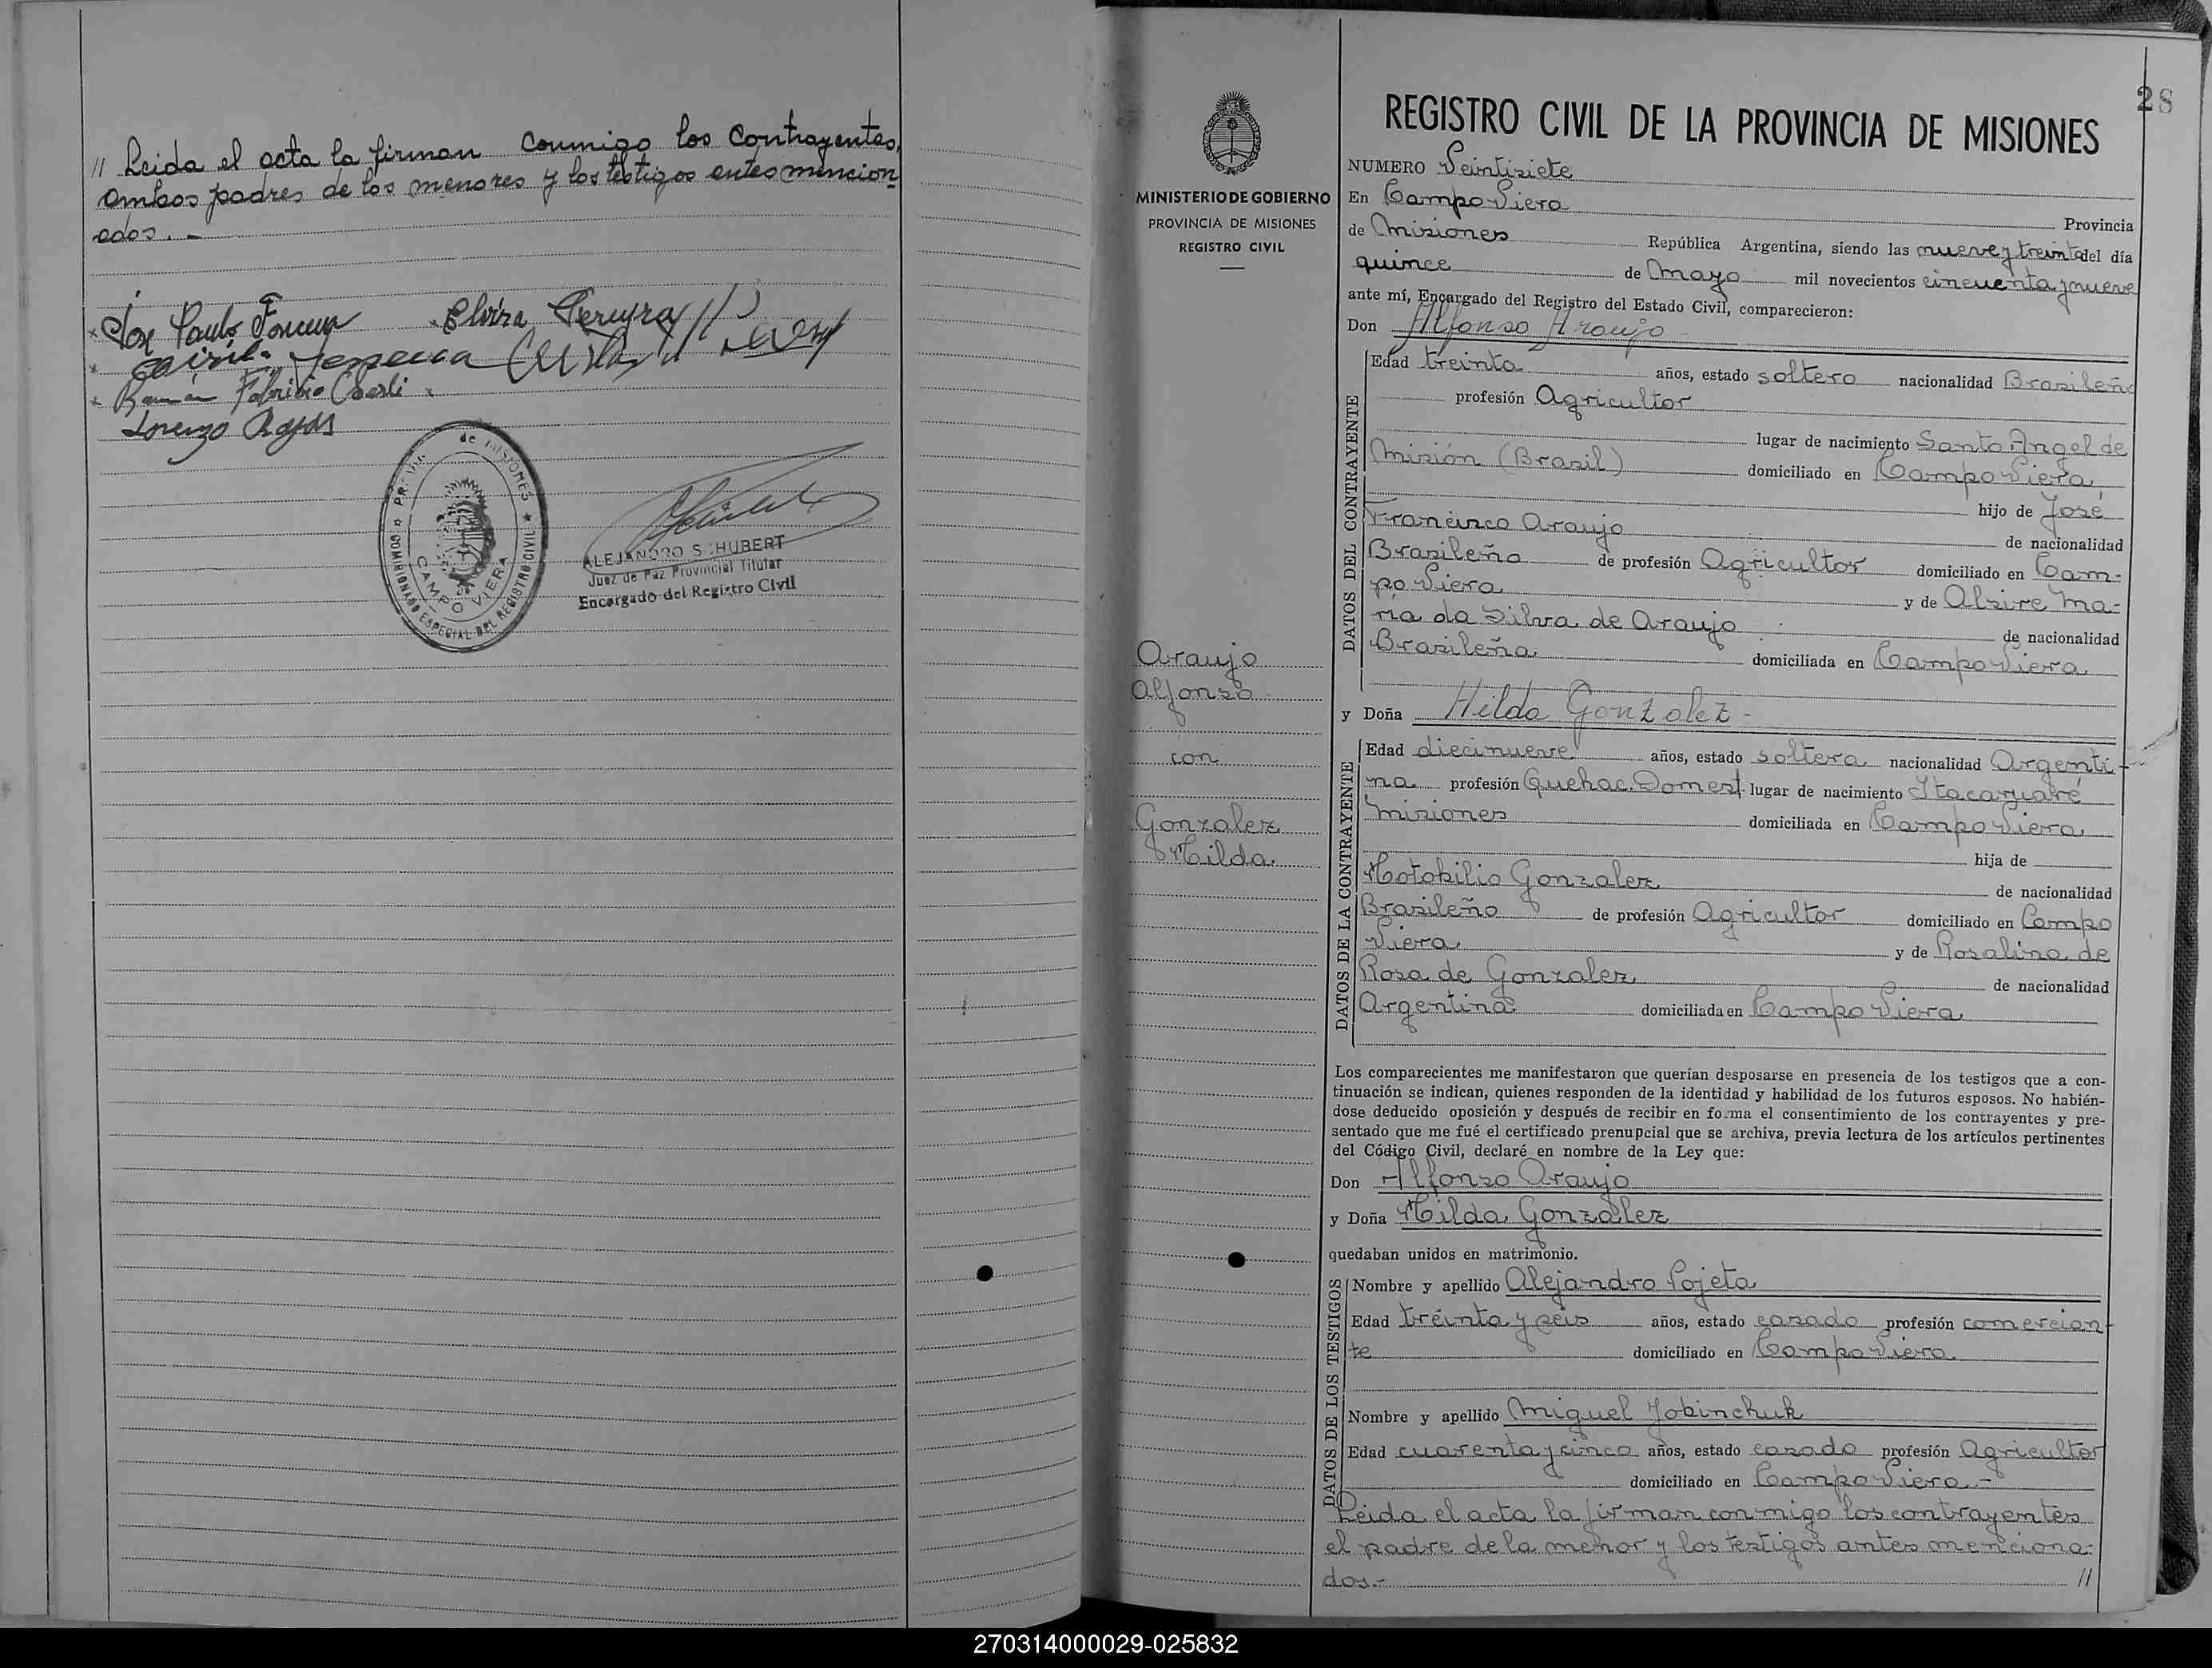 // Leida el acta la firman conmigo los contrayentes,
ambos padres de los menores y los testigos antes mencion
ados. -
Elvira Pereyra
Ramón Fabricio
Lorenzo
de MISIONES
COMISIONADO ESPECIAL DEL REGISTRO CIVIL
CAMPO VIERA
ALEJANDRO SCHUBERT
Juez de Paz Provincial Titular
Encargado del Registro Civil
28
MINISTERIO DE GOBIERNO
PROVINCIA DE MISIONES
REGISTRO CIVIL
Araujo
Alfonso
con
Gonzalez
Hilda
REGISTRO CIVIL DE LA PROVINCIA DE MISIONES
NUMERO Veintisiete
En Campo Viera
Provincia
de Misiones República Argentina, siendo las nueve y treinta del día
quince de Mayo mil novecientos cincuenta y nueve
ante mí, Encargado del Registro del Estado Civil, comparecieron:
Don Alfonso Araujo
DATOS DEL CONTRAYENTE
Edad treinta años, estado soltero nacionalidad Brasileño
profesión Agricultor
lugar de nacimiento Santo Angel de
Misión (Brasil) domiciliado en Campo Viera
hijo de José
Francisco Araujo de nacionalidad
Brasileño de profesión Agricultor domiciliado en Cam-
po Viera y de Alzire Ma-
ria da Silva de Araujo de nacionalidad
Brasileña domiciliada en Campo Viera
y Doña Hilda Gonzalez -
DATOS DE LA CONTRAYENTE
Edad diecinueve años, estado soltera nacionalidad Argenti-
na profesión Quehac. Domest. lugar de nacimiento Itacaruaré
Misiones domiciliada en Campo Viera
hija de
Gonzalez de nacionalidad
Brasileño de profesión Agricultor domiciliado en Campo
Viera y de Rosalina de
Rosa de Gonzalez de nacionalidad
Argentina domiciliada en Campo Viera
Los comparecientes me manifestaron que querían desposarse en presencia de los testigos que a con-
tinuación se indican, quienes responden de la identidad y habilidad de los futuros esposos. No habién-
dose deducido oposición y después de recibir en forma el consentimiento de los contrayentes y pre-
sentado que me fué el certificado prenupcial que se archiva, previa lectura de los artículos pertinentes
del Código Civil, declaré en nombre de la Ley que:
Don Alfonso Araujo
y Doña Hilda Gonzalez
quedaban unidos en matrimonio.
DATOS DE LOS TESTIGOS
Nombre y apellido Alejandro Pojeta
Edad treinta y seis años, estado casado profesión comercian-
te domiciliado en Campo Viera
Nombre y apellido Miguel Jobinchuk
Edad cuarenta y cinco años, estado casado profesión Agricultor
domiciliado en Campo Viera -
Leida el acta la firman conmigo los contrayentes
el padre de la menor y los testigos antes menciona-
dos.- //
270314000029-025832